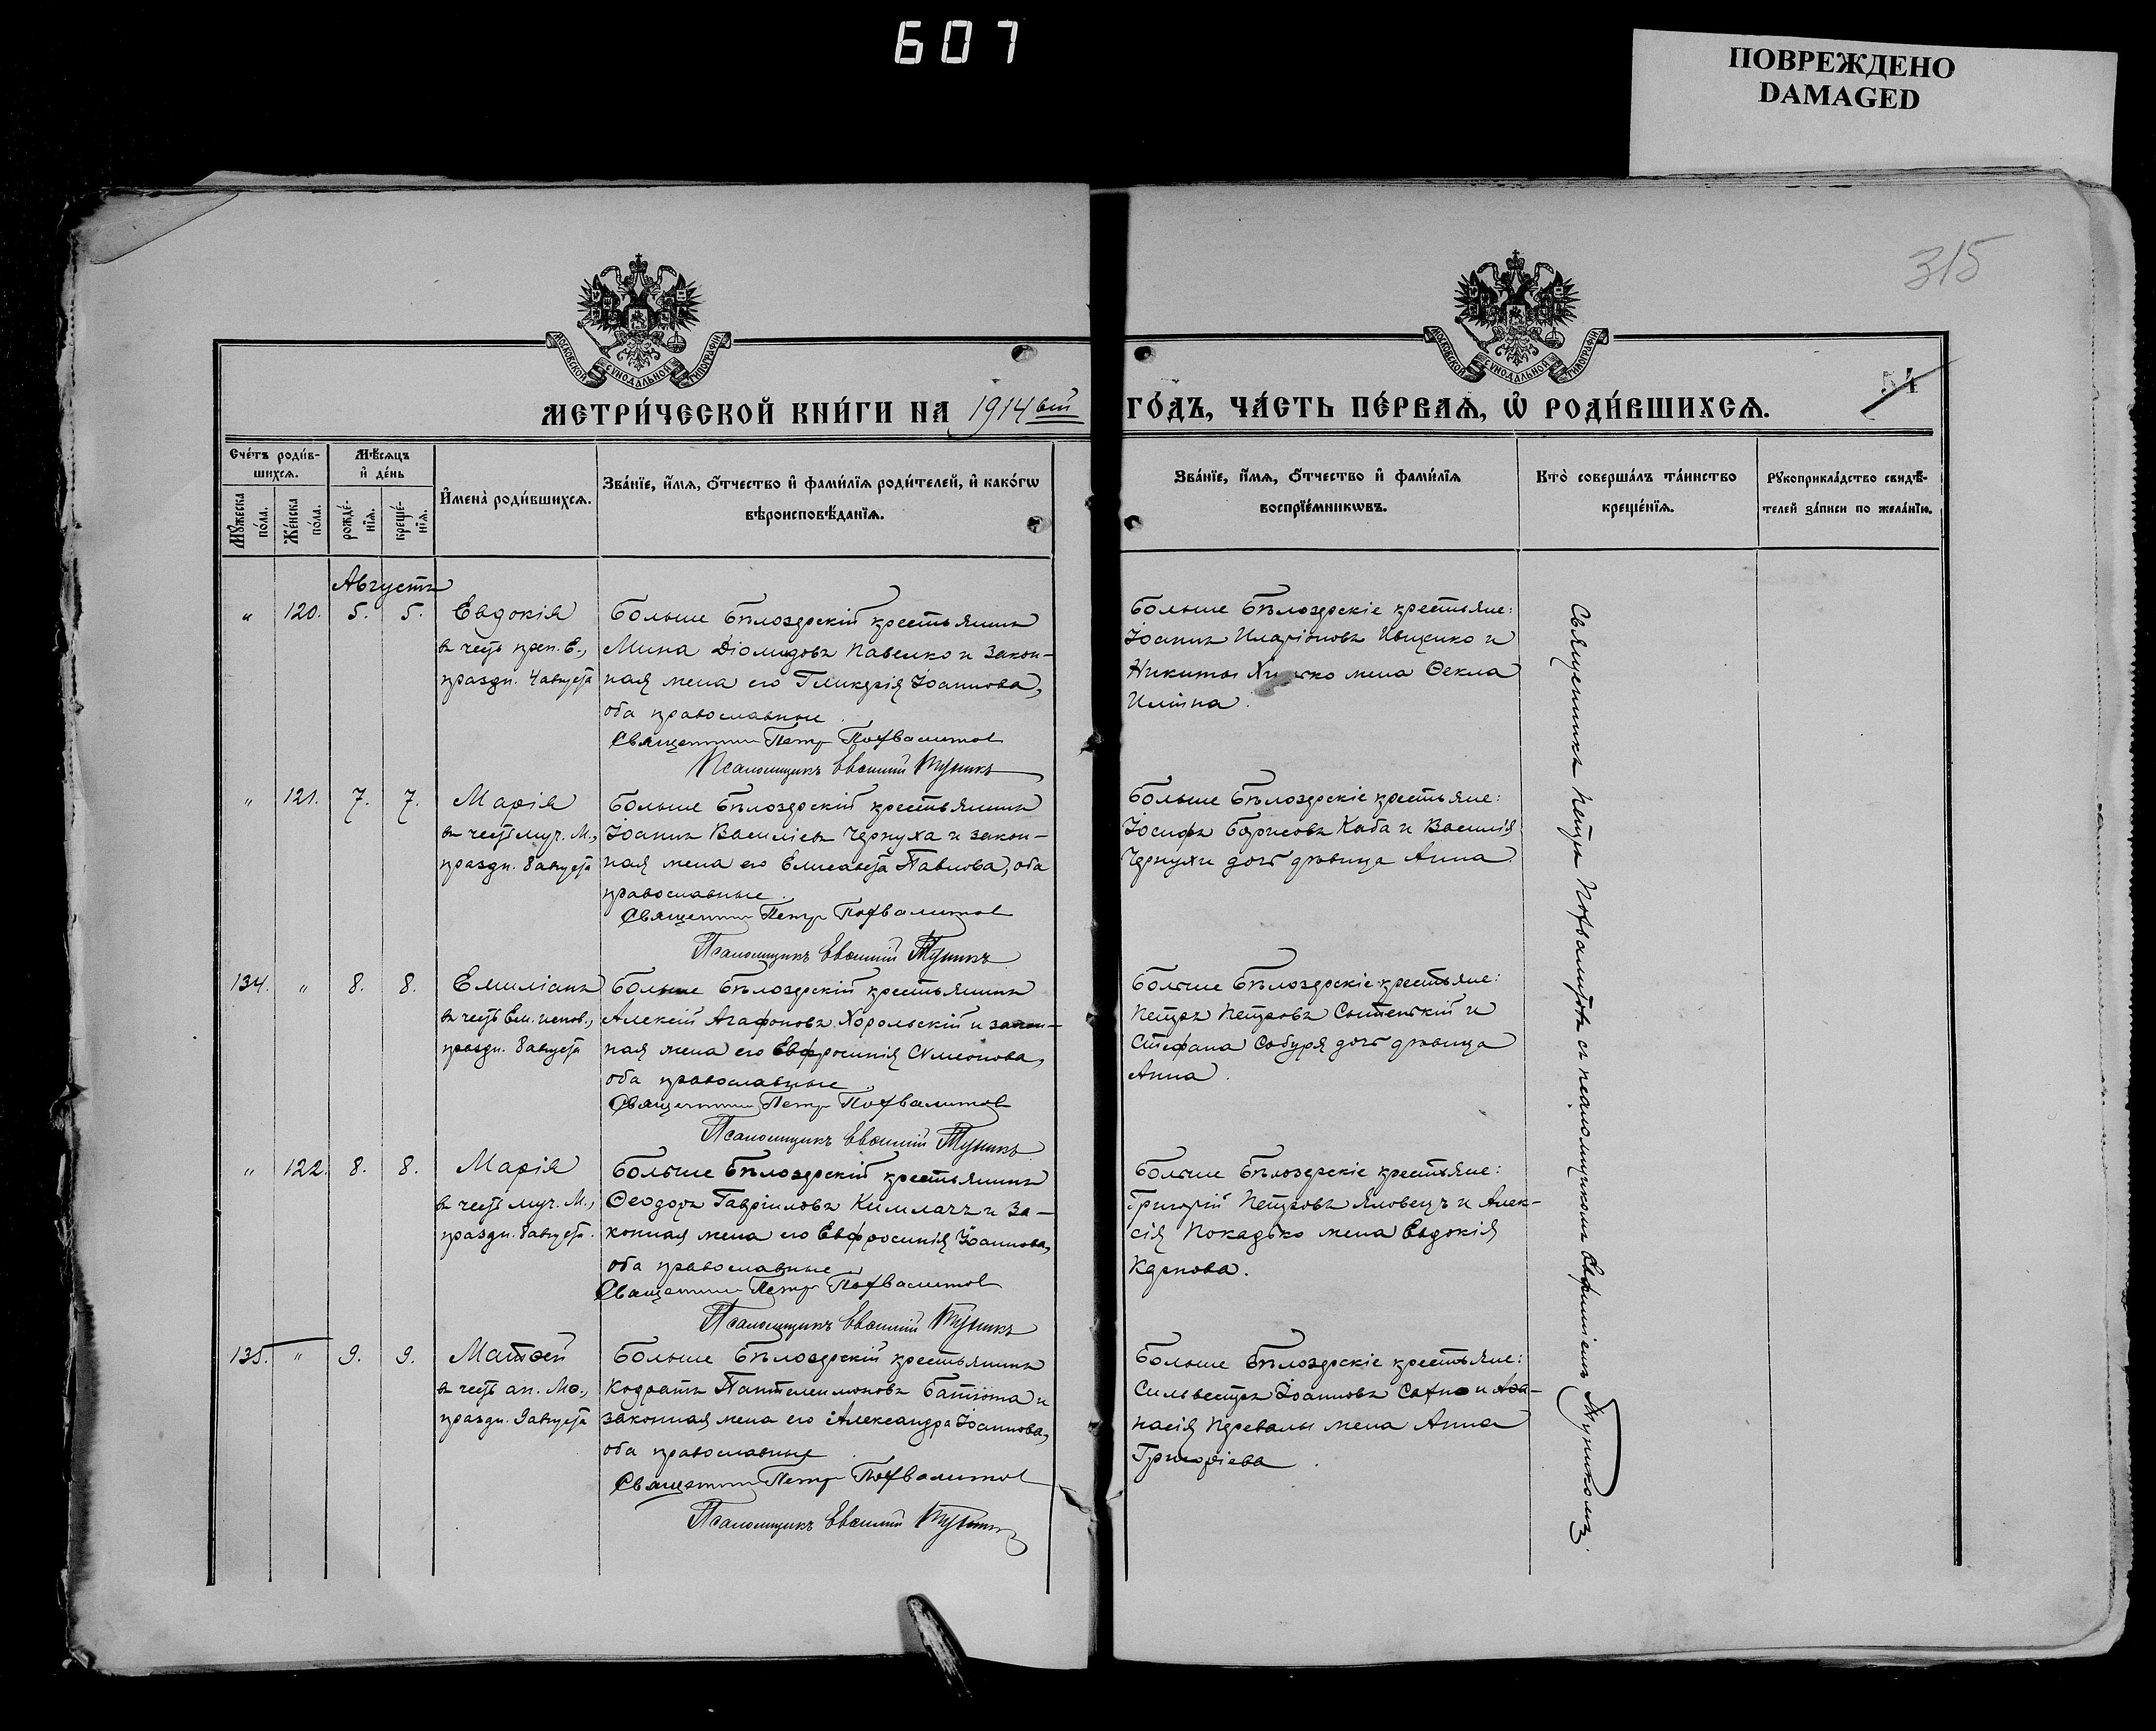 607
ПОВРЕЖДЕНО
DAMAGED
315
МОСКОВСКОЙ СѴНОДАЛЬНОЙ ТИПОГРАФІИ
МОСКОВСКОЙ СѴНОДАЛЬНОЙ ТИПОГРАФІИ
54
МЕТРИ́ЧЕСКОЙ КНИ́ГИ НА 1914 ый ГО́ДЪ, ЧА́СТЬ ПЕ́РВАѦ, Ѡ҆ РОДИ́ВШИХСѦ.
Сче́тъ роди́в-
шихсѧ.
Мꙋ́жеска
по́ла.
Же́нска
по́ла.
Мѣ́сѧцъ
и҆ де́нь
рожде́-
нїѧ.
креще́-
нїѧ.
И҆мена̀ роди́вшихсѧ.
Зва́нїе, и҆́мѧ, ѻ҆́тчество и҆ фами́лїѧ роди́телей, и҆ како́гѡ
вѣроисповѣ́данїѧ.
Зва́нїе, и҆́мѧ, ѻ҆́тчество и҆ фами́лїѧ
воспрїе́мникѡвъ.
Кто̀ соверша́лъ та́инство
креще́нїѧ.
Рꙋкоприкла́дство свидѣ́-
телей за́писи по жела́нїю.
Августъ
" 120. 5. 5. Евдокія
въ честь преп. Е.,
праздн. 4 августа
Больше Бѣлозерскій крестьянинъ
Мина Діомидовъ Павелко и закон-
ная жена его Гликерія Іоаннова,
оба православные.
Священникъ Петръ Похвалитовъ
Псаломщикъ Евѳимій Тупикъ
Больше Бѣлозерскіе крестьяне:
Іоаннъ Иларіоновъ Ивженко и
Никиты жена Ѳекла
Иліина.
" 121. 7. 7. Марія
въ честь муч. М.,
праздн. 8 августа
Больше Бѣлозерскій крестьянинъ
Іоаннъ Василіевъ Чернуха и закон-
ная жена его Елисавета Павлова, оба
православные.
Священникъ Петръ Похвалитовъ
Псаломщикъ Евѳимій Тупикъ
Больше Бѣлозерскіе крестьяне:
Іосифъ Борисовъ Каба и Василія
Чернухи дочь дѣвица Анна.
134. " 8. 8. Емиліанъ
въ честь Ем. испов.,
праздн. 8 августа
Больше Бѣлозерскій крестьянинъ
Алексій Агафоновъ Хорольскій и закон-
ная жена его Евфросинія Сѵмеонова,
оба православные.
Священникъ Петръ Похвалитовъ
Псаломщикъ Евѳимій Тупикъ
Больше Бѣлозерскіе крестьяне:
Петръ Петровъ Сытенькій и
Стефана Сабуря дочь дѣвица
Анна.
" 122. 8. 8. Марія
въ честь муч. М.,
праздн. 8 августа.
Больше Бѣлозерскій крестьянинъ
Ѳеодоръ Гавріиловъ Кимлачъ и за-
конная жена его Евфросинія Іоаннова,
оба православные.
Священникъ Петръ Похвалитовъ
Псаломщикъ Евѳимій Тупикъ
Больше Бѣлозерскіе крестьяне:
Григорій Петровъ Яловецъ и Алек-
сія Покадько жена Евдокія
Карпова.
135. " 9. 9. Матѳей
въ честь ап. Мѳ.,
праздн. 9 августа
Больше Бѣлозерскій крестьянинъ
Кодратъ Пантелеимоновъ Батюта и
законная жена его Александра Іоаннова,
оба православные
Священникъ Петръ Похвалитовъ
Псаломщикъ Евѳимій Тупикъ
Больше Бѣлозерскіе крестьяне:
Сильвестръ Іоанновъ Сахно и Аѳа-
насія Перевалы жена Анна
Григоріева.
Священникъ Петръ Похвалитовъ съ псаломщикомъ Евфиміемъ Тупикомъ.